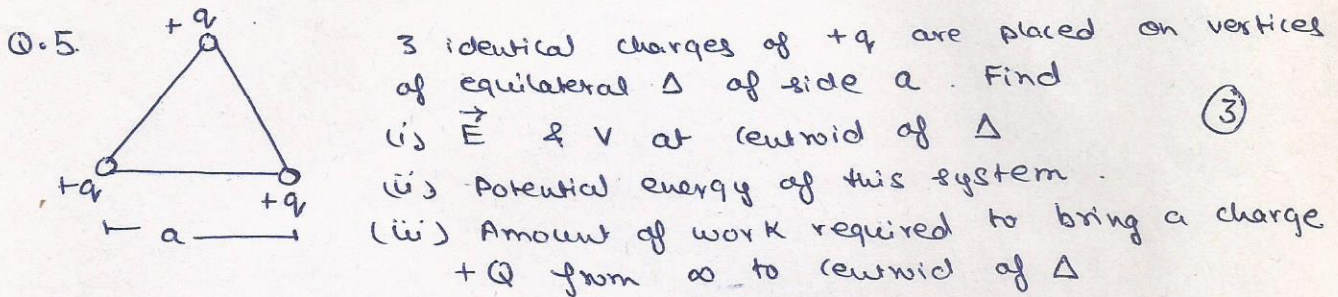 Q.5.
+q
+q
+q
a
3 identical charges of +q are placed on vertices
of equilateral Δ of side a. Find
(i) E⃗ & V at centroid of Δ
(3)
(ii) Potential energy of this system.
(iii) Amount of work required to bring a charge
+Q from ∞ to centroid of Δ